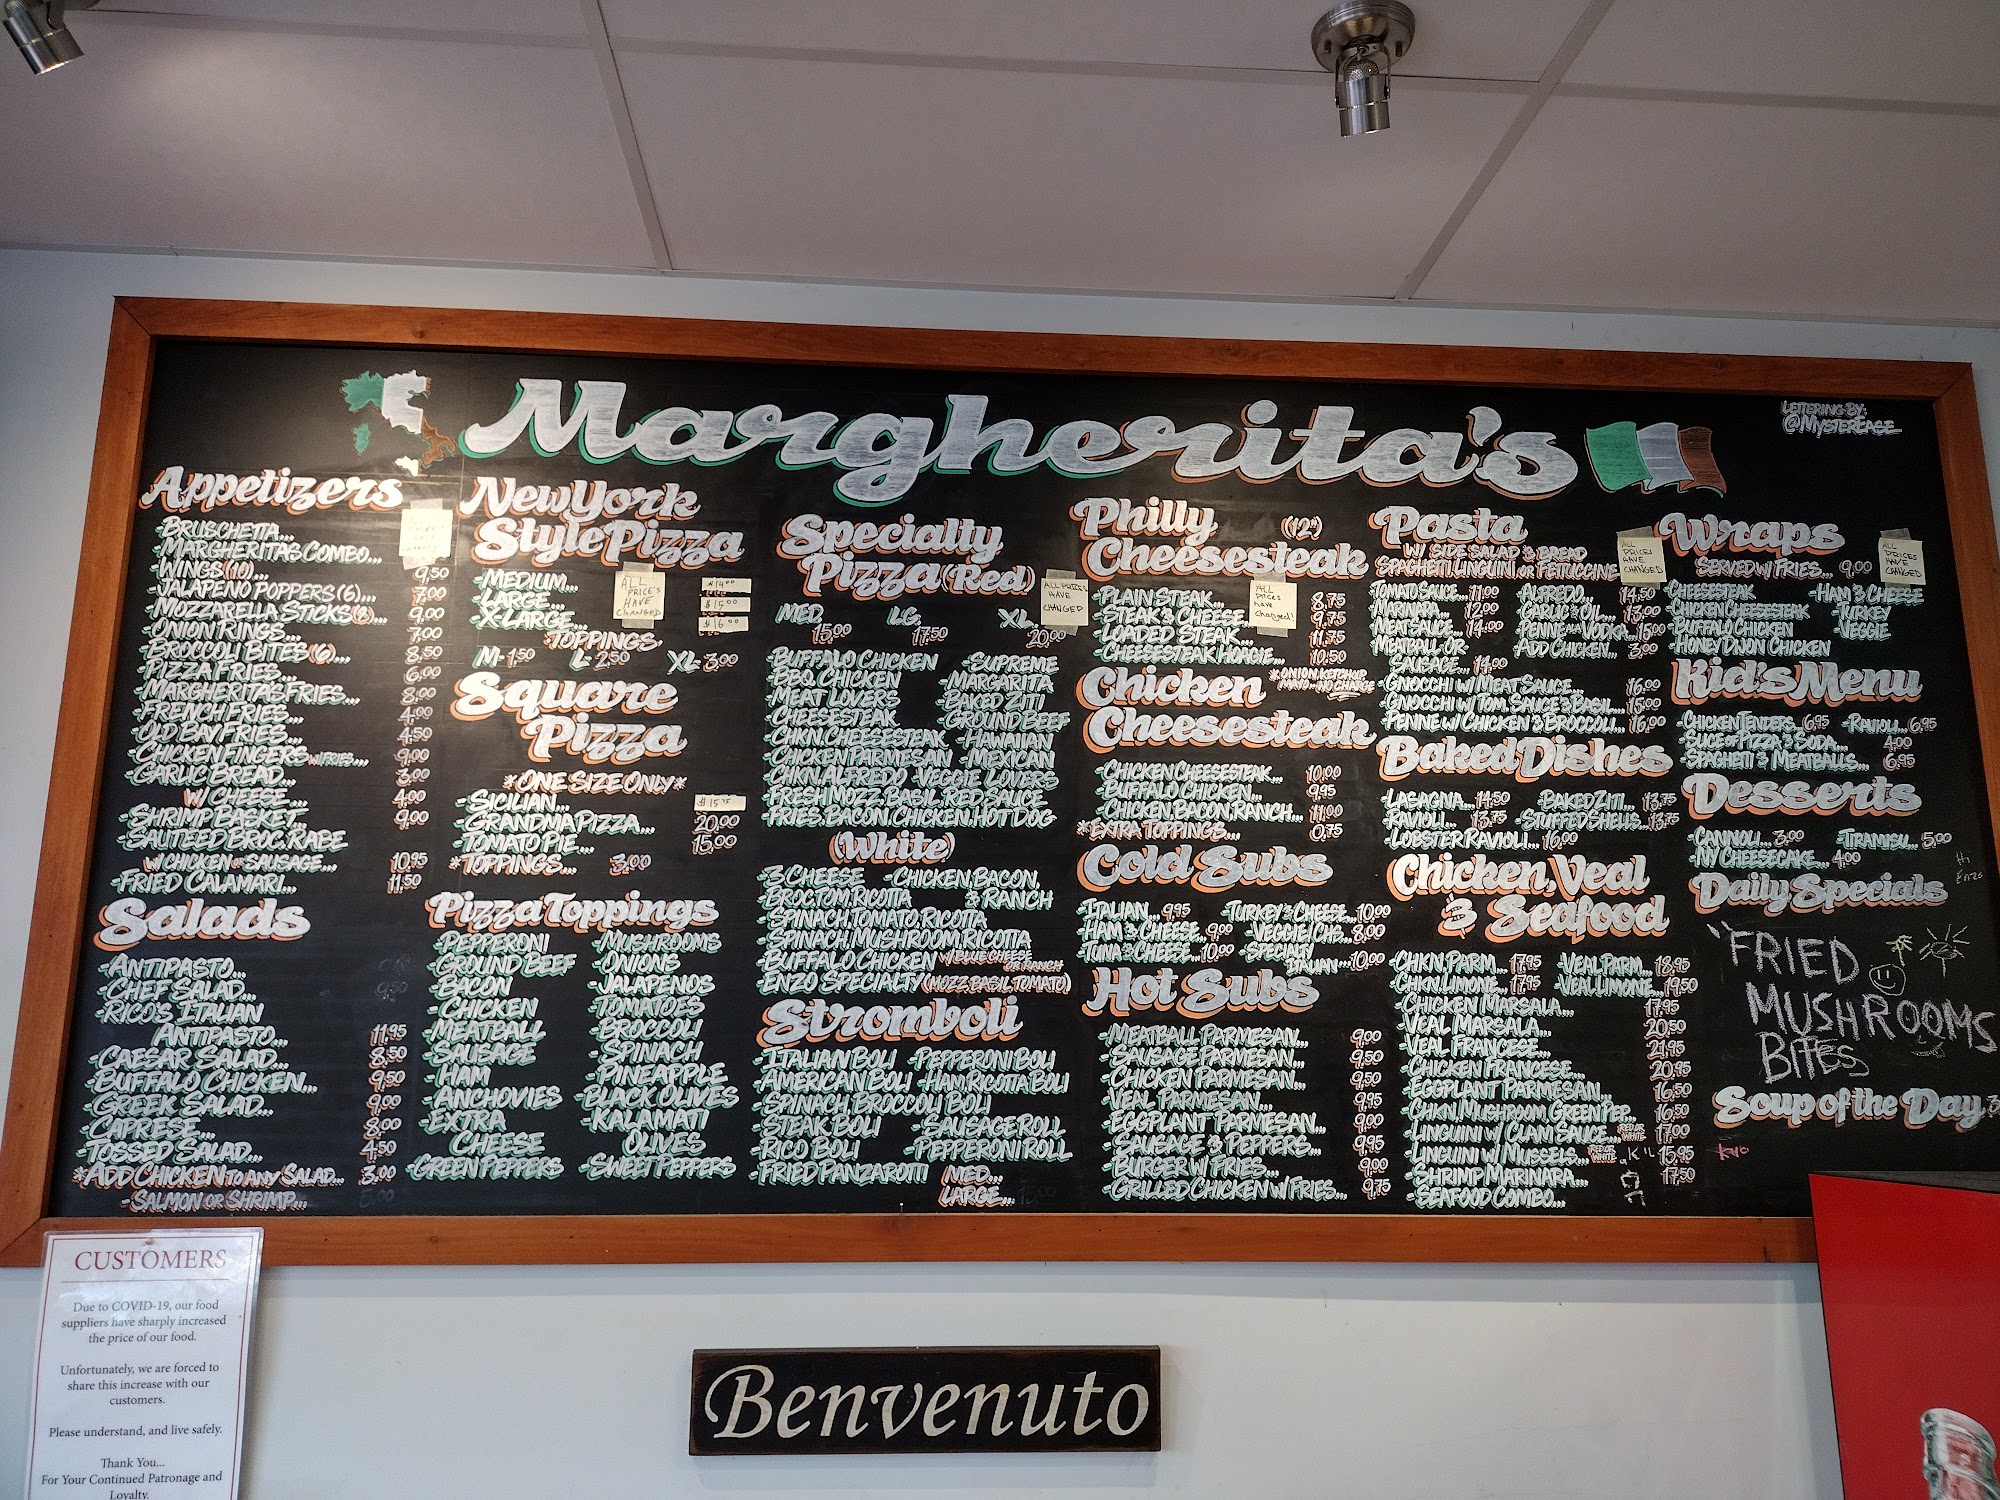 Margherita's
LETTERING BY:
@MYSTEREASE
Appetizers
-BRUSCHETTA...
-MARGHERITAS COMBO...
-WINGS (10)... 9,50
-JALAPENO POPPERS (6)... 7,00
-MOZZARELLA STICKS (8)... 9,00
-ONION RINGS... 7,00
-BROCCOLI BITES (6)... 8,50
-PIZZA FRIES... 6,00
-MARGHERITAS FRIES... 8,00
-FRENCH FRIES... 4,00
-OLD BAY FRIES... 4,50
-CHICKEN FINGERS W/FRIES... 9,00
-GARLIC BREAD... 3,00
W/ CHEESE... 4,00
-SHRIMP BASKET... 9,00
-SAUTEED BROC. RABE
W/ CHICKEN OR SAUSAGE... 10,95
-FRIED CALAMARI... 11,50
Salads
-ANTIPASTO...
-CHEF SALAD...
-RICO'S ITALIAN
ANTIPASTO... 11,95
-CAESAR SALAD... 8,50
-BUFFALO CHICKEN... 9,50
-GREEK SALAD... 9,00
-CAPRESE... 8,00
-TOSSED SALAD... 4,50
*ADD CHICKEN TO ANY SALAD... 3,00
-SALMON OR SHRIMP... 5,00
New York
Style Pizza
-MEDIUM... $14.00
-LARGE... $15.00
-X-LARGE... $16.00
ALL
PRICE'S
HAVE
CHANGED
-TOPPINGS
M- 1,50 L- 2,50 XL- 3,00
Square
Pizza
*ONE SIZE ONLY*
-SICILIAN... $15.75
-GRANDMA PIZZA... 20,00
-TOMATO PIE... 15,00
*TOPPINGS... 3,00
Pizza Toppings
-PEPPERONI -MUSHROOMS
-GROUND BEEF -ONIONS
-BACON -JALAPENOS
-CHICKEN -TOMATOES
-MEATBALL -BROCCOLI
-SAUSAGE -SPINACH
-HAM -PINEAPPLE
-ANCHOVIES -BLACK OLIVES
-EXTRA -KALAMATI
CHEESE OLIVES
-GREEN PEPPERS -SWEET PEPPERS
Specialty
Pizza (Red)
ALL PRIZES
HAVE
CHANGED
MED. LG. XL.
15,00 17,50 20,00
-BUFFALO CHICKEN -SUPREME
-BBQ CHICKEN -MARGARITA
-MEAT LOVERS -BAKED ZITI
-CHEESESTEAK -GROUND BEEF
-CHKN. CHEESESTEAK -HAWAIIAN
-CHICKEN PARMESAN -MEXICAN
-CHKN. ALFREDO -VEGGIE LOVERS
-FRESH MOZZ, BASIL, RED SAUCE
-FRIES, BACON, CHICKEN, HOT DOG
(White)
-3 CHEESE -CHICKEN, BACON,
-BROC, TOM, RICOTTA & RANCH
-SPINACH, TOMATO, RICOTTA
-SPINACH, MUSHROOM, RICOTTA
-BUFFALO CHICKEN W/ BLUE CHEESE
OR RANCH
-ENZO SPECIALTY (MOZZ BASIL TOMATO)
Stromboli
-ITALIAN BOLI -PEPPERONI BOLI
-AMERICAN BOLI -HAM RICOTTA BOLI
-SPINACH, BROCCOLI BOLI
-STEAK BOLI -SAUSAGE ROLL
-RICO BOLI -PEPPERONI ROLL
-FRIED PANZAROTTI MED...
LARGE...
Philly (12")
Cheesesteak
-PLAIN STEAK... 8,75
-STEAK & CHEESE... 9,75
-LOADED STEAK... 11,75
-CHEESESTEAK HOAGIE... 10,50
ALL
Prices
have
changed!
*ONION, KETCHUP,
MAYO - NO CHARGE
Chicken
Cheesesteak
-CHICKEN CHEESESTEAK... 10,00
-BUFFALO CHICKEN... 9,95
-CHICKEN, BACON, RANCH... 11,00
*EXTRA TOPPINGS... 0,75
Cold Subs
-ITALIAN... 9,95 -TURKEY & CHEESE... 10,00
-HAM & CHEESE... 9,00 -VEGGIE/CHS... 8,00
-TUNA & CHEESE... 10,00 -SPECIALTY
ITALIAN... 10,00
Hot Subs
-MEATBALL PARMESAN... 9,00
-SAUSAGE PARMESAN... 9,50
-CHICKEN PARMESAN... 9,50
-VEAL PARMESAN... 9,95
-EGGPLANT PARMESAN... 9,00
-SAUSAGE & PEPPERS... 9,95
-BURGER W/ FRIES... 9,00
-GRILLED CHICKEN W/ FRIES... 9,75
Pasta
W/ SIDE SALAD & BREAD
SPAGHETTI, LINGUINI, OR FETTUCCINE
ALL
PRICES
HAVE
CHANGED
-TOMATO SAUCE... 11,00 -ALFREDO... 14,50
-MARINARA... 12,00 -GARLIC & OIL... 13,00
-MEAT SAUCE... 14,00 -PENNE VODKA... 15,00
-MEATBALL -OR- -ADD CHICKEN... 3,00
SAUSAGE... 14,00
-GNOCCHI W/ MEAT SAUCE... 16,00
-GNOCCHI W/ TOM. SAUCE & BASIL... 15,00
-PENNE W/ CHICKEN & BROCCOLI... 16,00
Baked Dishes
-LASAGNA... 14,50 -BAKED ZITI... 13,75
-RAVIOLI... 13,75 -STUFFED SHELLS... 13,75
-LOBSTER RAVIOLI... 16,00
Chicken, Veal
& Seafood
-CHKN. PARM... 17,95 -VEAL PARM... 18,95
-CHKN. LIMONE... 17,95 -VEAL LIMONE... 19,50
-CHICKEN MARSALA... 17,95
-VEAL MARSALA... 20,50
-VEAL FRANCESE... 21,95
-CHICKEN FRANCESE... 20,95
-EGGPLANT PARMESAN... 16,50
-CHKN, MUSHROOM, GREEN PEP... 16,50
-LINGUINI W/ CLAM SAUCE... RED OR WHITE 17,00
-LINGUINI W/ MUSSELS... RED OR WHITE 15,95
-SHRIMP MARINARA... 17,50
-SEAFOOD COMBO...
Wraps
SERVED W/ FRIES... 9,00
ALL
PRICES
HAVE
CHANGED
-CHEESESTEAK -HAM & CHEESE
-CHICKEN CHEESESTEAK -TURKEY
-BUFFALO CHICKEN -VEGGIE
-HONEY DIJON CHICKEN
Kid's Menu
-CHICKEN TENDERS... 6,95 -RAVIOLI... 6,95
-SLICE OF PIZZA & SODA... 4,00
-SPAGHETTI & MEATBALLS... 6,95
Desserts
-CANNOLI... 3,00 -TIRAMISU... 5,00
-NY CHEESECAKE... 4,00
Hi
Enzo
Daily Specials
"FRIED
MUSHROOMS
BITES
Soup of the Day
CUSTOMERS
Due to COVID-19, our food
suppliers have sharply increased
the price of our food.
Unfortunately, we are forced to
share this increase with our
customers.
Please understand, and live safely.
Thank You...
For Your Continued Patronage and
Loyalty.
Benvenuto